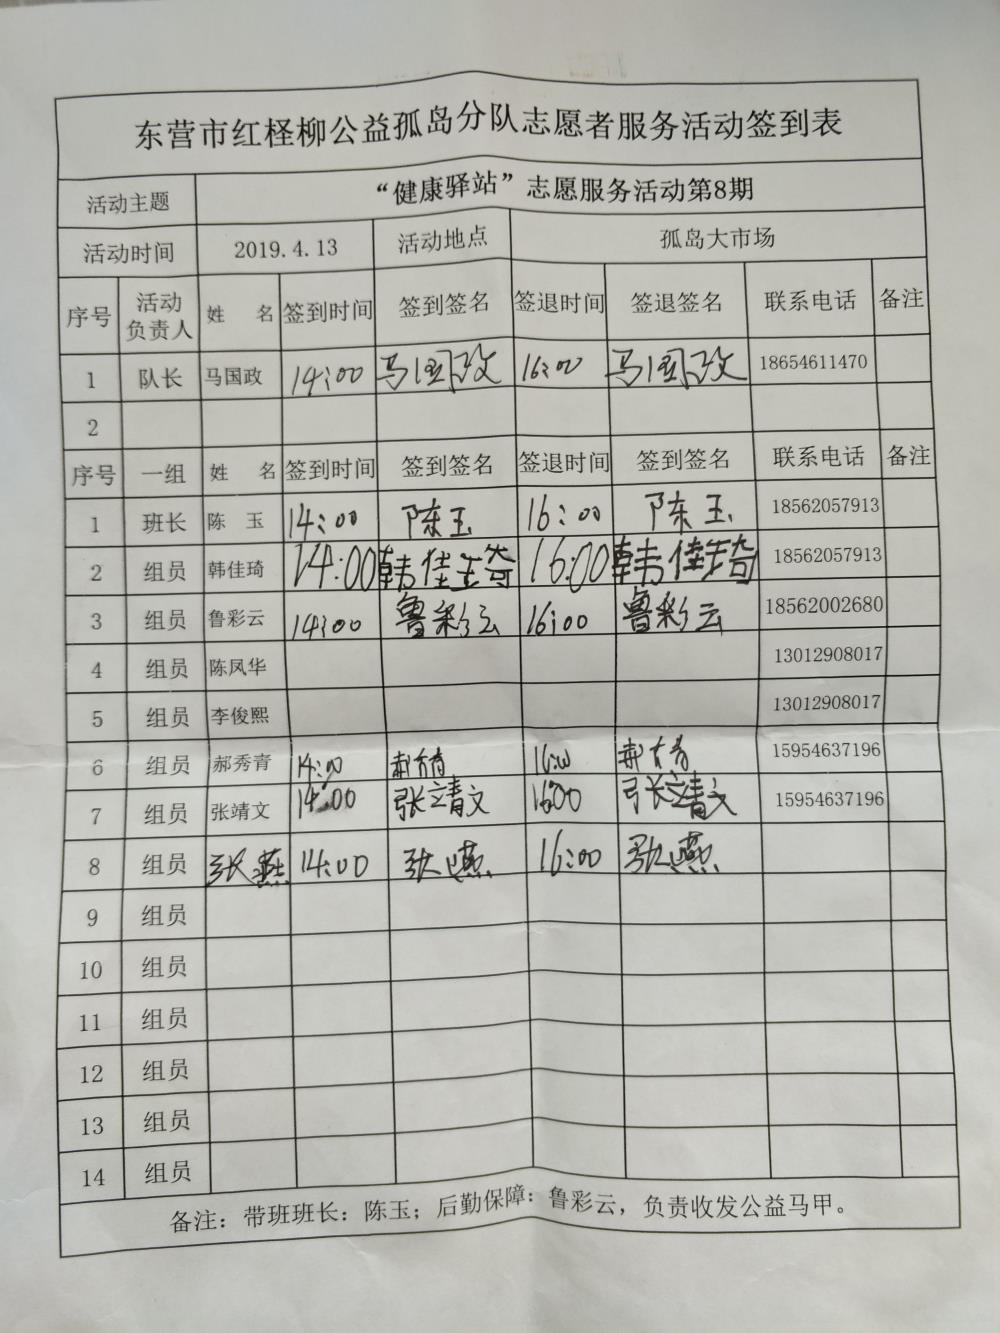 东营市红柽柳公益孤岛分队志愿者服务活动签到表
活动主题 “健康驿站”志愿服务活动第8期
活动时间 2019.4.13 活动地点 孤岛大市场
序号 活动负责人 姓 名 签到时间 签到签名 签退时间 签退签名 联系电话 备注
1 队长 马国政 14:00 马国政 16:00 马国政 18654611470
2
序号 一组 姓 名 签到时间 签到签名 签退时间 签到签名 联系电话 备注
1 班长 陈 玉 14:00 陈玉 16:00 陈玉 18562057913
2 组员 韩佳琦 14:00 韩佳琦 16:00 韩佳琦 18562057913
3 组员 鲁彩云 14:00 鲁彩云 16:00 鲁彩云 18562002680
4 组员 陈凤华 13012908017
5 组员 李俊熙 13012908017
6 组员 郝秀青 14:00 郝秀青 16:00 郝秀青 15954637196
7 组员 张靖文 14:00 张靖文 16:00 张靖文 15954637196
8 组员 张燕 14:00 张燕 16:00 张燕
9 组员
10 组员
11 组员
12 组员
13 组员
14 组员
备注：带班班长：陈玉；后勤保障：鲁彩云，负责收发公益马甲。